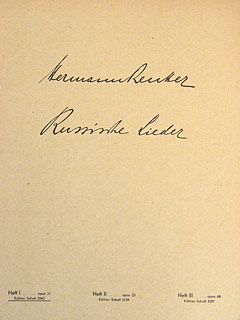 Hermann Reutter
Russische Lieder
Heft I opus 21
Edition Schott
Heft II opus 23
Edition Schott
Heft III opus 68
Edition Schott